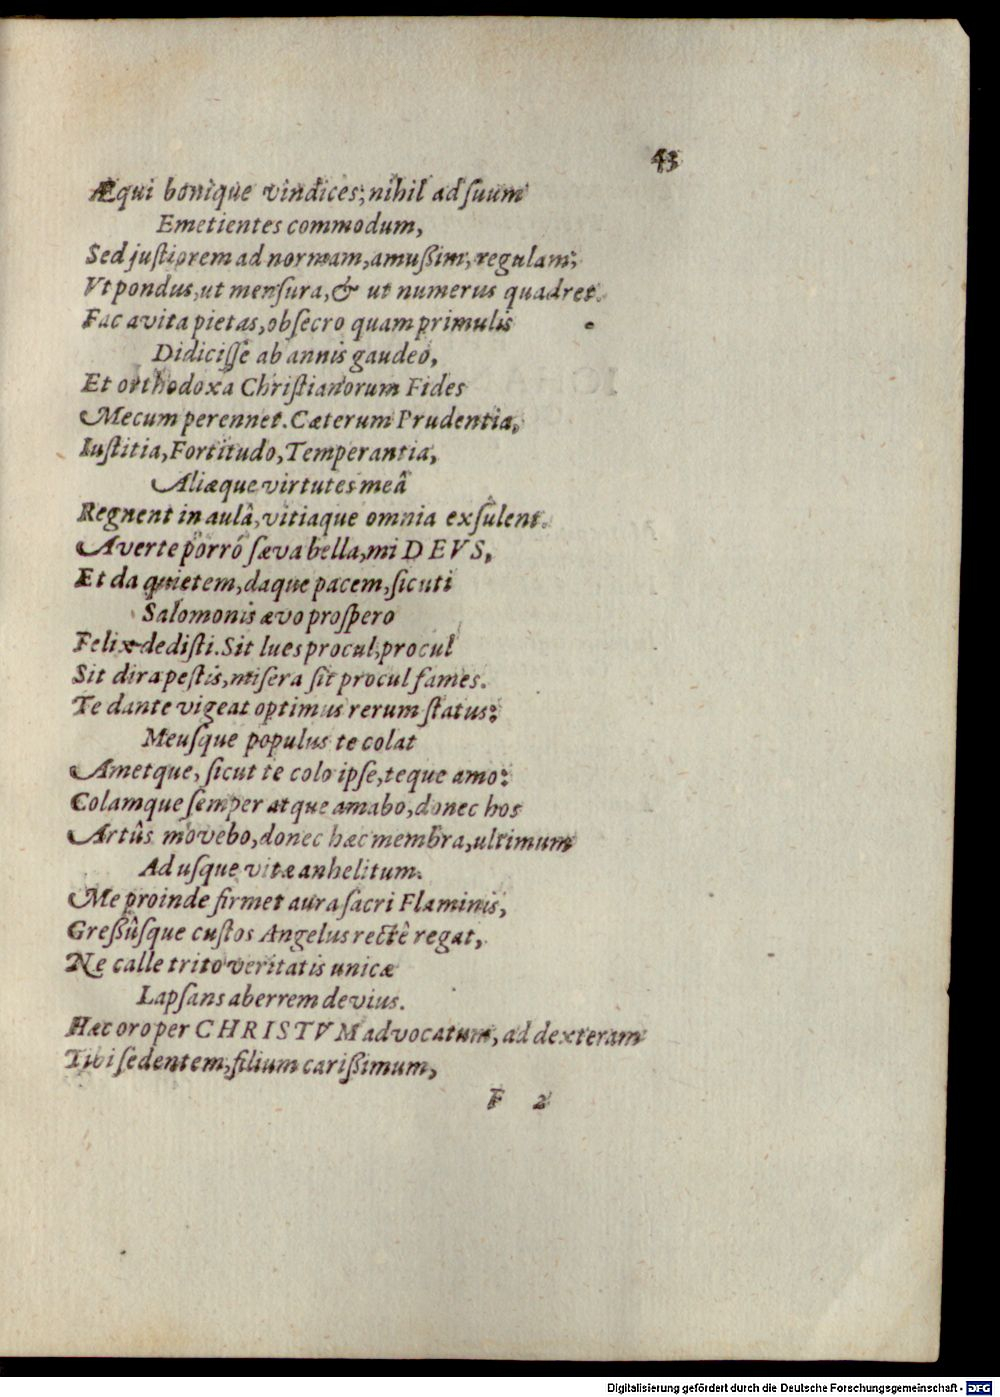 43
Æqui bonique vindices; nihil ad ſuum
Emetientes commodum,
Sed juſtiorem ad normam, amußim, regulam;
Vt pondus, ut menſura, & ut numerus quadret.
Fac avita pietas, obſecro quam primulis
Didiciſſe ab annis gaudeo,
Et orthodoxa Chriſtianorum Fides
Mecum perennet. Cæterum Prudentia,
Iuſtitia, Fortitudo, Temperantia,
Aliæque virtutes meâ
Regnent in aulâ, vitiaque omnia exſulent.
Averte porró ſæva bella, mi DEVS,
Et da quietem, daque pacem, ſicuti
Salomonis ævo proſpero
Felix dediſti. Sit lues procul, procul
Sit dira peſtis, miſera ſit procul fames.
Te dante vigeat optimus rerum ſtatus:
Meuſque populus te colat
Ametque, ſicut te colo ipſe, teque amo:
Colamque ſemper atque amabo, donec hos
Artûs movebo, donec hæc membra, ultimum
Ad uſque vitæ anhelitum.
Me proinde firmet aura ſacri Flaminis,
Greßûſque cuſtos Angelus rectê regat,
Ne calle trito veritatis unicæ
Lapſans aberrem devius.
Hæc oro per CHRISTVM advocatum, ad dexteram
Tibi ſedentem, filium carißimum,
F 2
Digitalisierung gefördert durch die Deutsche Forschungsgemeinschaft - DFG